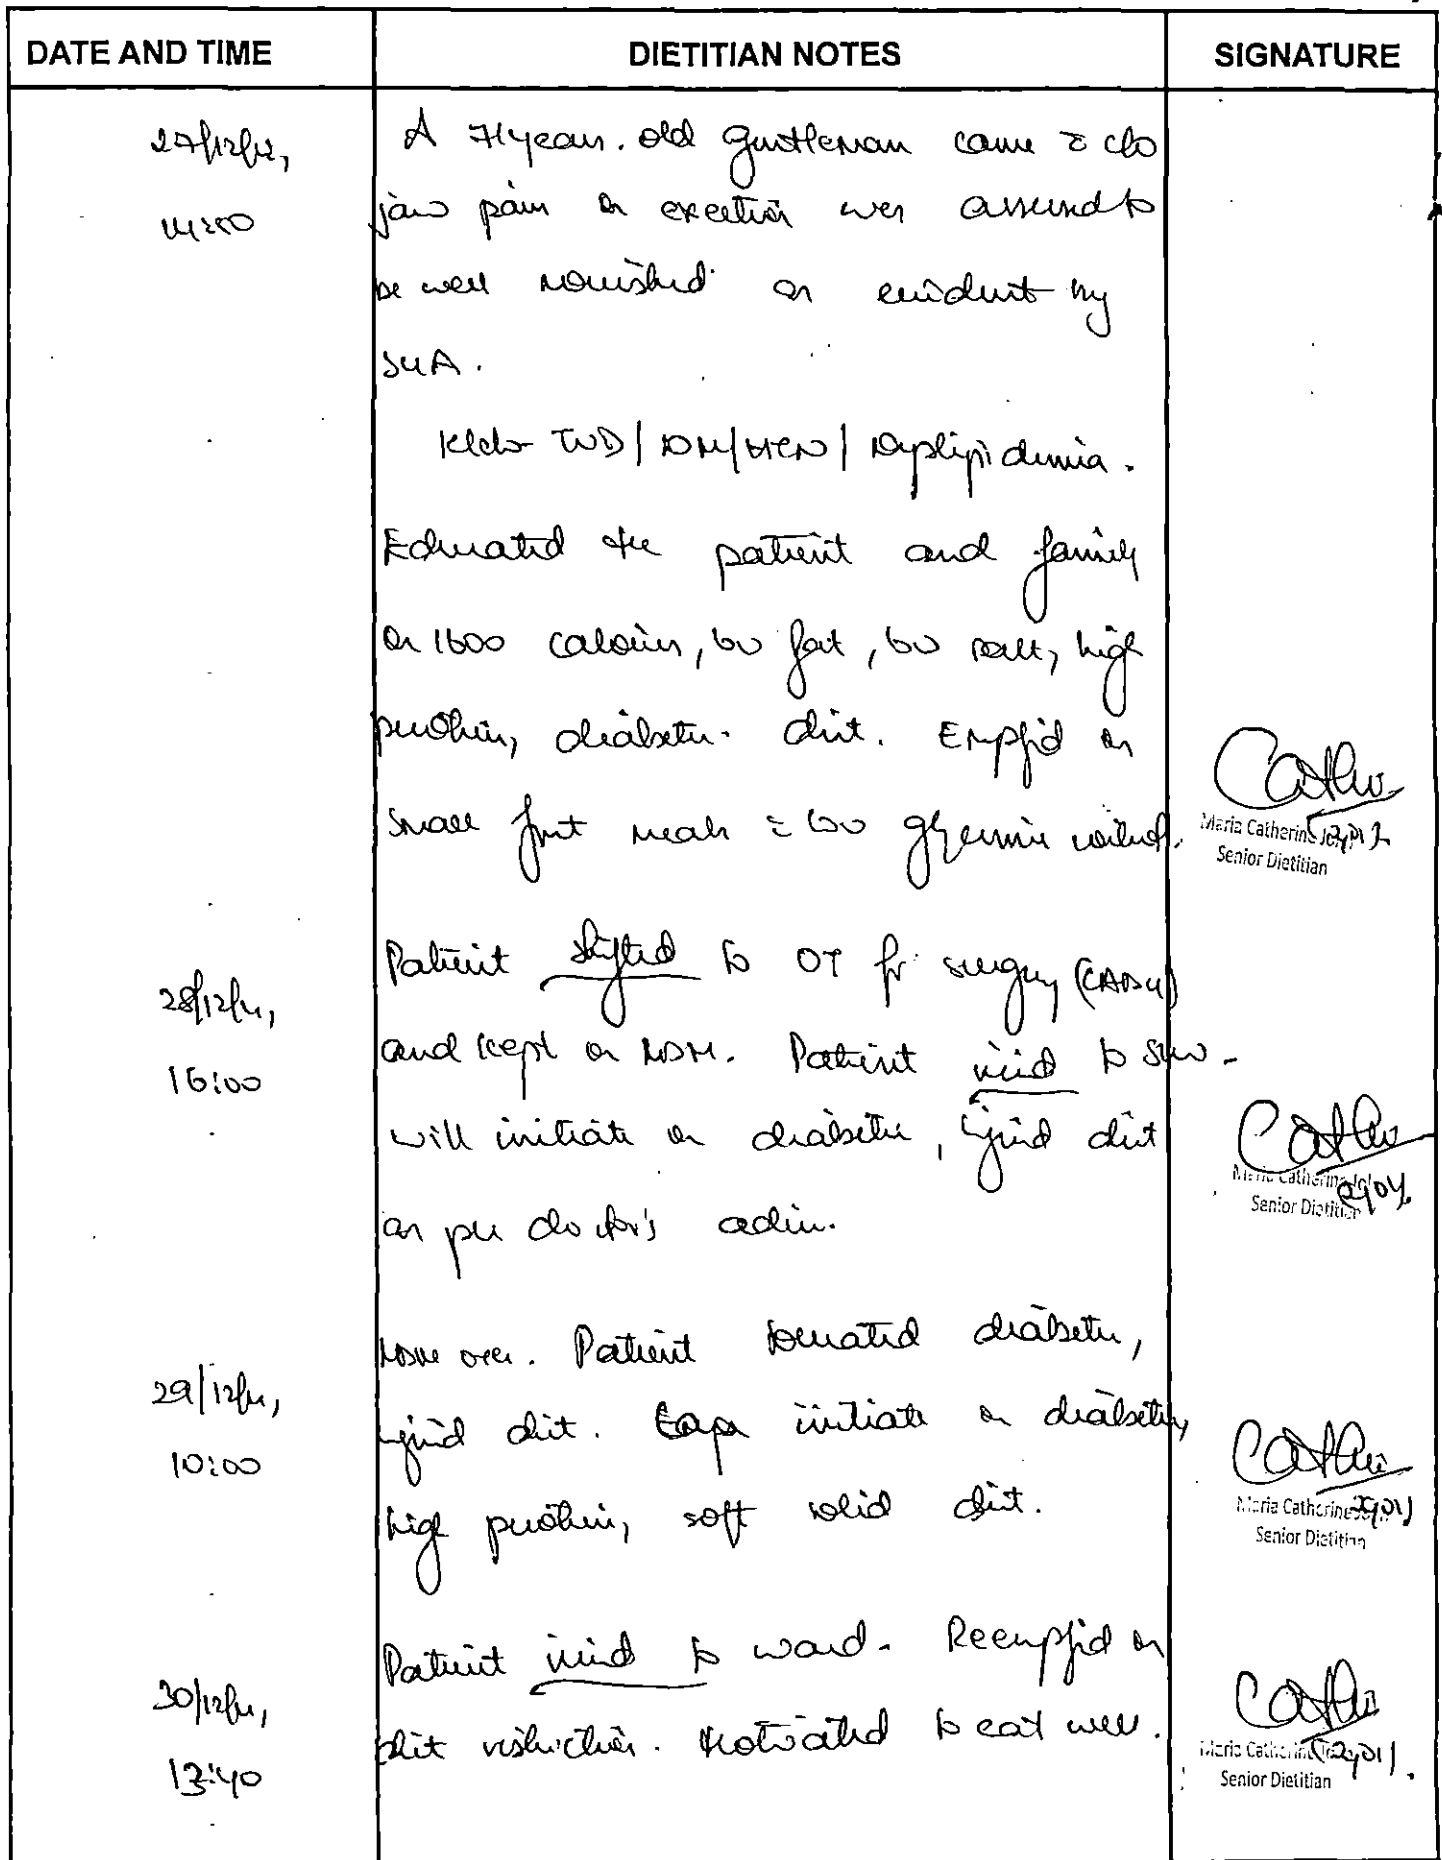 DATE AND TIME DIETITIAN NOTES SIGNATURE
A 71 years old gentleman came c̄ c/o
jaw pain on exertion was assessed to
be well nourished as evident by
SGA.
DM/HTN/Dyslipidemia.
Educated the patient and family
on 1600 calories, low fat, low salt, high
protein, diabetic diet.
small frqt meals c̄ low glycemic
Maria Catherine
Senior Dietitian
28/12/
16:00
Patient shifted to OT for surgery (CABG)
and kept on NBM. Patient to
will initiate on diabetic, liquid diet
as per doctor's advice.
Maria Catherine
Senior Dietitian
29/12/
10:00
NBM over. Patient tolerated diabetic,
liquid diet. initiate on diabetic,
high protein, soft solid diet.
Maria Catherine
Senior Dietitian
30/12/
13:40
Patient to ward. on
diet restriction. Motivated to eat well.
Maria Catherine
Senior Dietitian